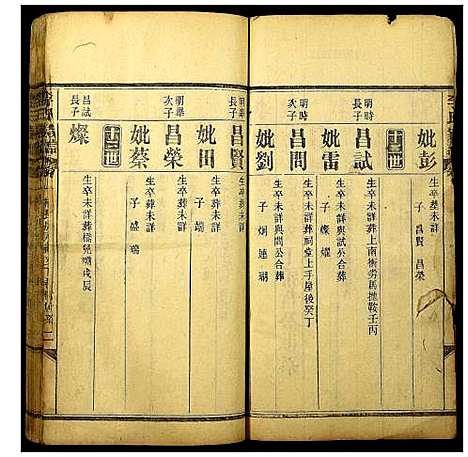 妣彭
生卒葬未詳
子 昌賢 昌榮
十二世
明時
長子
昌試
生卒未詳葬上南衝勞馬拋鞍壬丙
妣雷
生卒未詳與試公合葬
子 燦 燿
明時
次子
昌問
生卒未詳葬祠堂上手屋後癸丁
妣劉
生卒未詳與問公合葬
子 炯 璉 瑚
明舉
長子
昌賢
生卒葬未詳
妣田
生卒葬未詳
子 瑞
明舉
次子
昌榮
生卒葬未詳
妣蔡
生卒葬未詳
子 盛 瑞
十三世
昌試
長子
燦
生卒未詳葬
戌辰